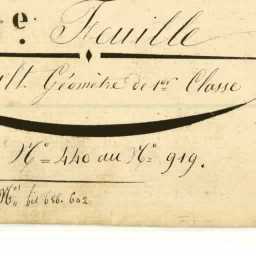 e. Feuille
ult. Géomètre de 1er Classe
No 440 au No 919.
Nos bis 686. 602